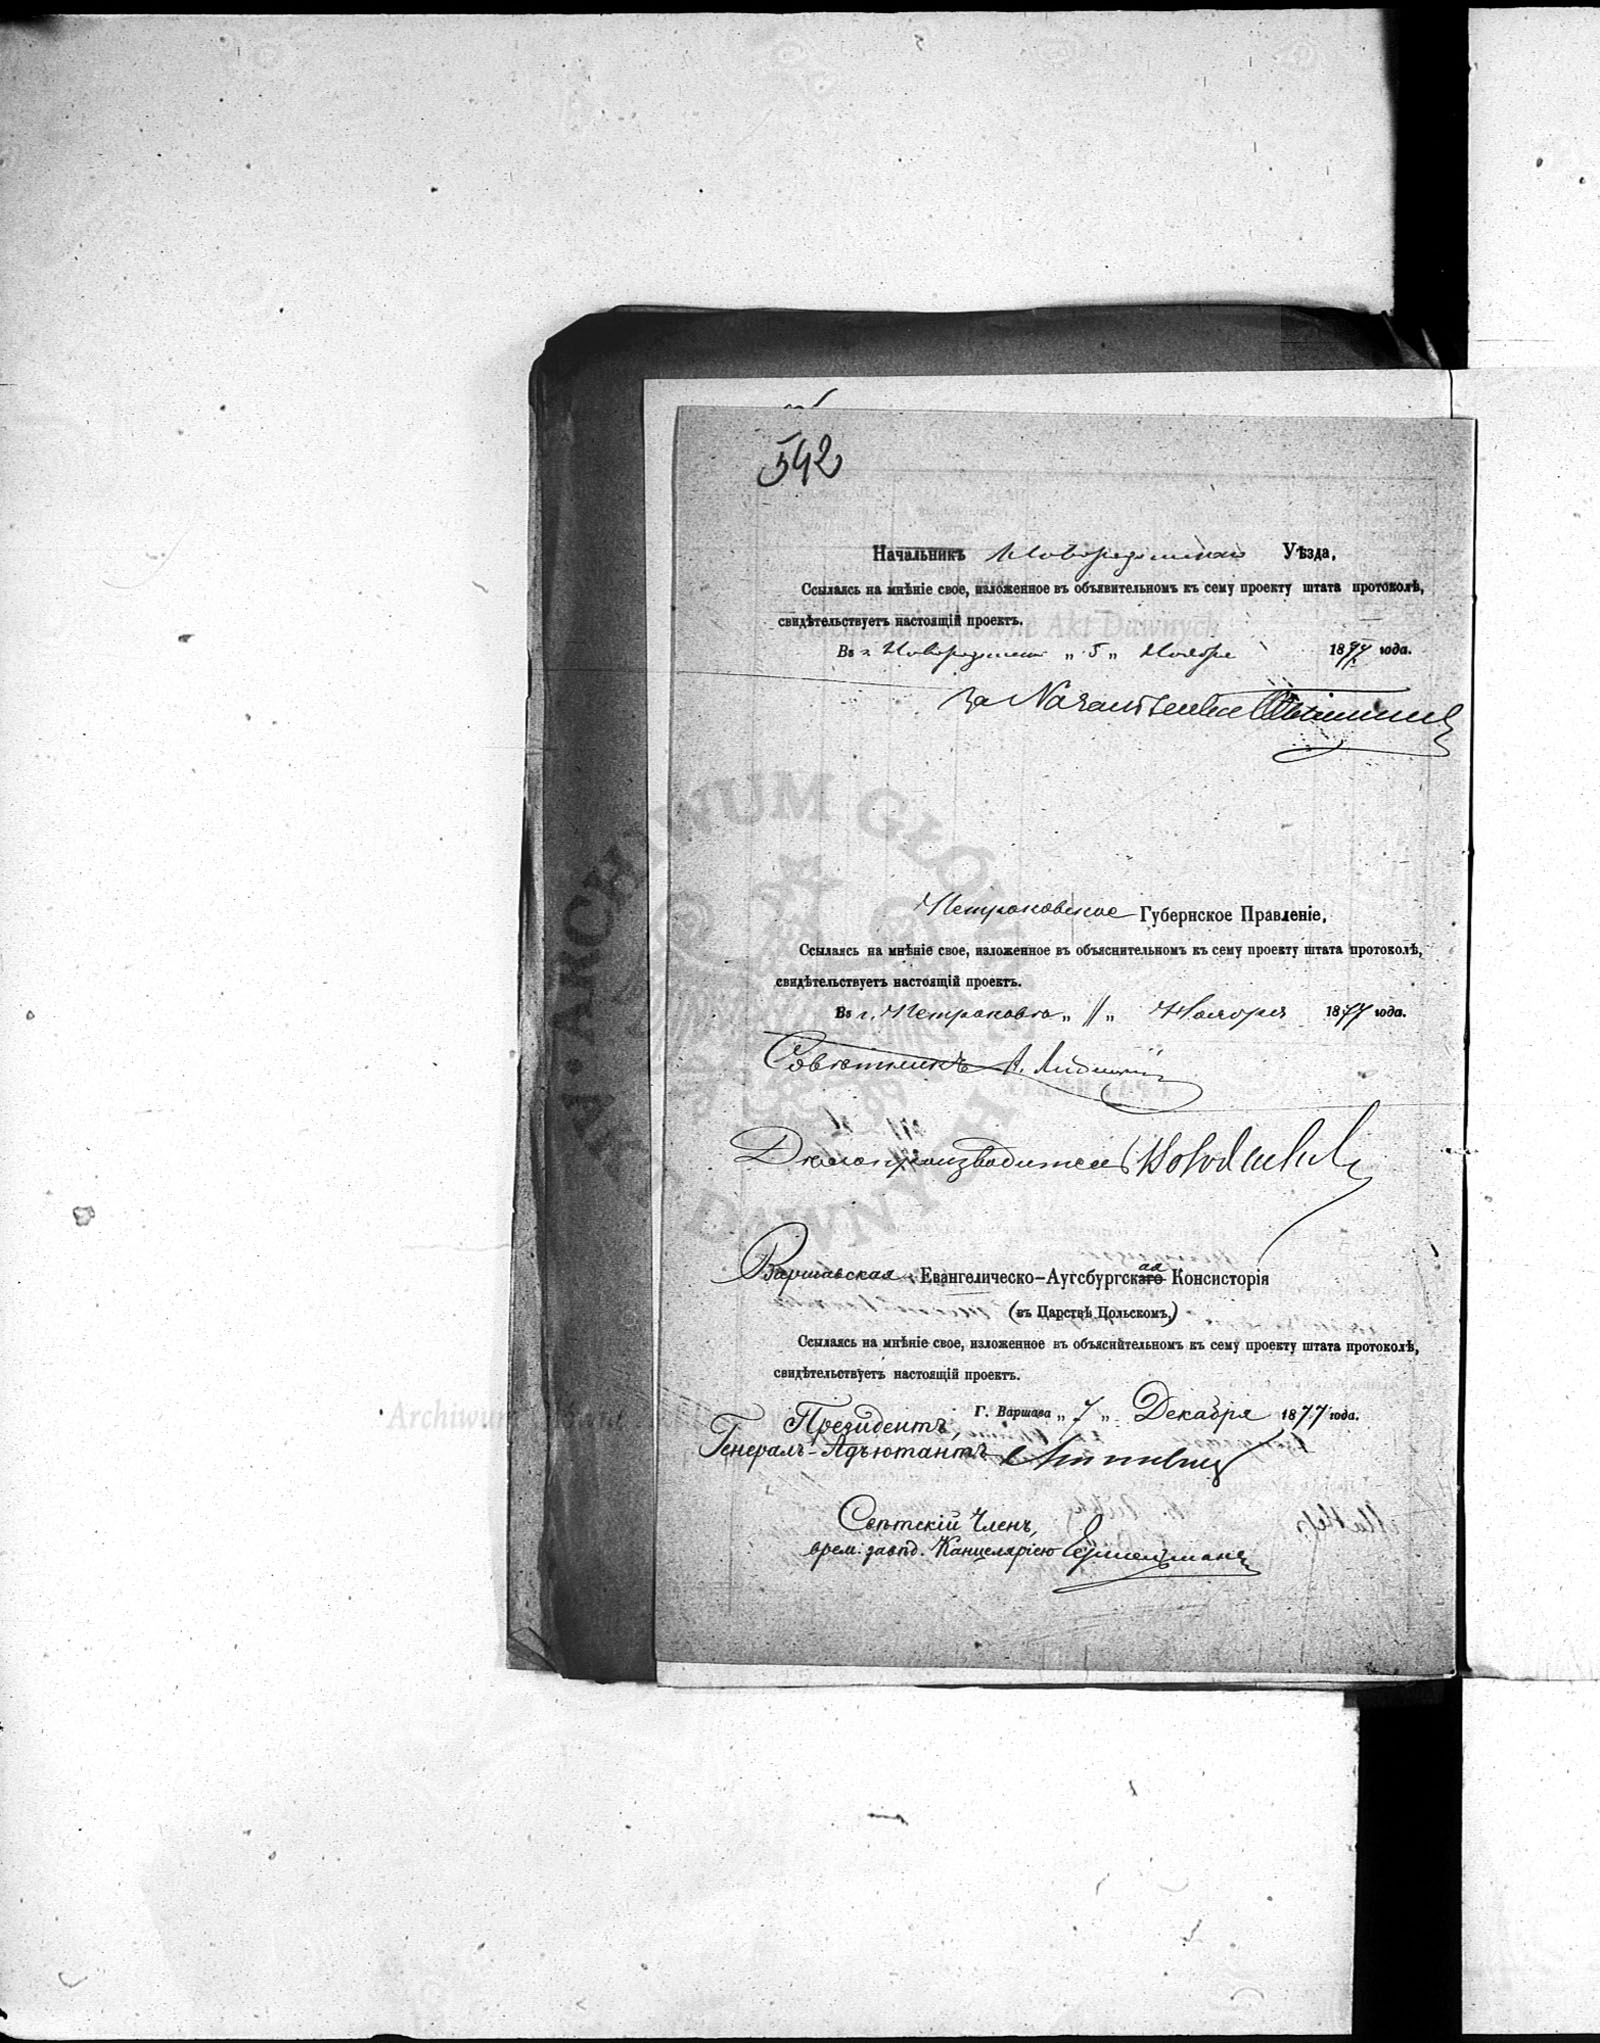 542
Начальникъ Новорадомскаго Уѣзда,
Ссылаясь на мнѣніе свое, изложенное въ объявительномъ къ сему проекту штата протоколѣ,
свидѣтельствуетъ настоящій проектъ.
Въ г. Новорадомскѣ „ 5 „ Ноября 1877 года.
За Начальника
Петроковское Губернское Правленіе,
Ссылаясь на мнѣніе свое, изложенное въ объяснительномъ къ сему проекту штата протоколѣ,
свидѣтельствуетъ настоящій проектъ.
Въ г. Петроковѣ „ 11 „ Ноября 1877 года.
Совѣтникъ А.
Дѣлопроизводитель
Варшавская Евангелическо-Аугсбургская Консисторія
(въ Царствѣ Польскомъ,)
Ссылаясь на мнѣніе свое, изложенное въ объяснительномъ къ сему проекту штата протоколѣ,
свидѣтельствуетъ настоящій проектъ.
Г. Варшава „ 7 „ Декабря 1877 года.
Президентъ,
Генералъ-Адъютантъ
Свѣтскій Членъ,
врем. завѣд. Канцеляріею
ARCHIWUM GŁÓWNE
AKT DAWNYCH